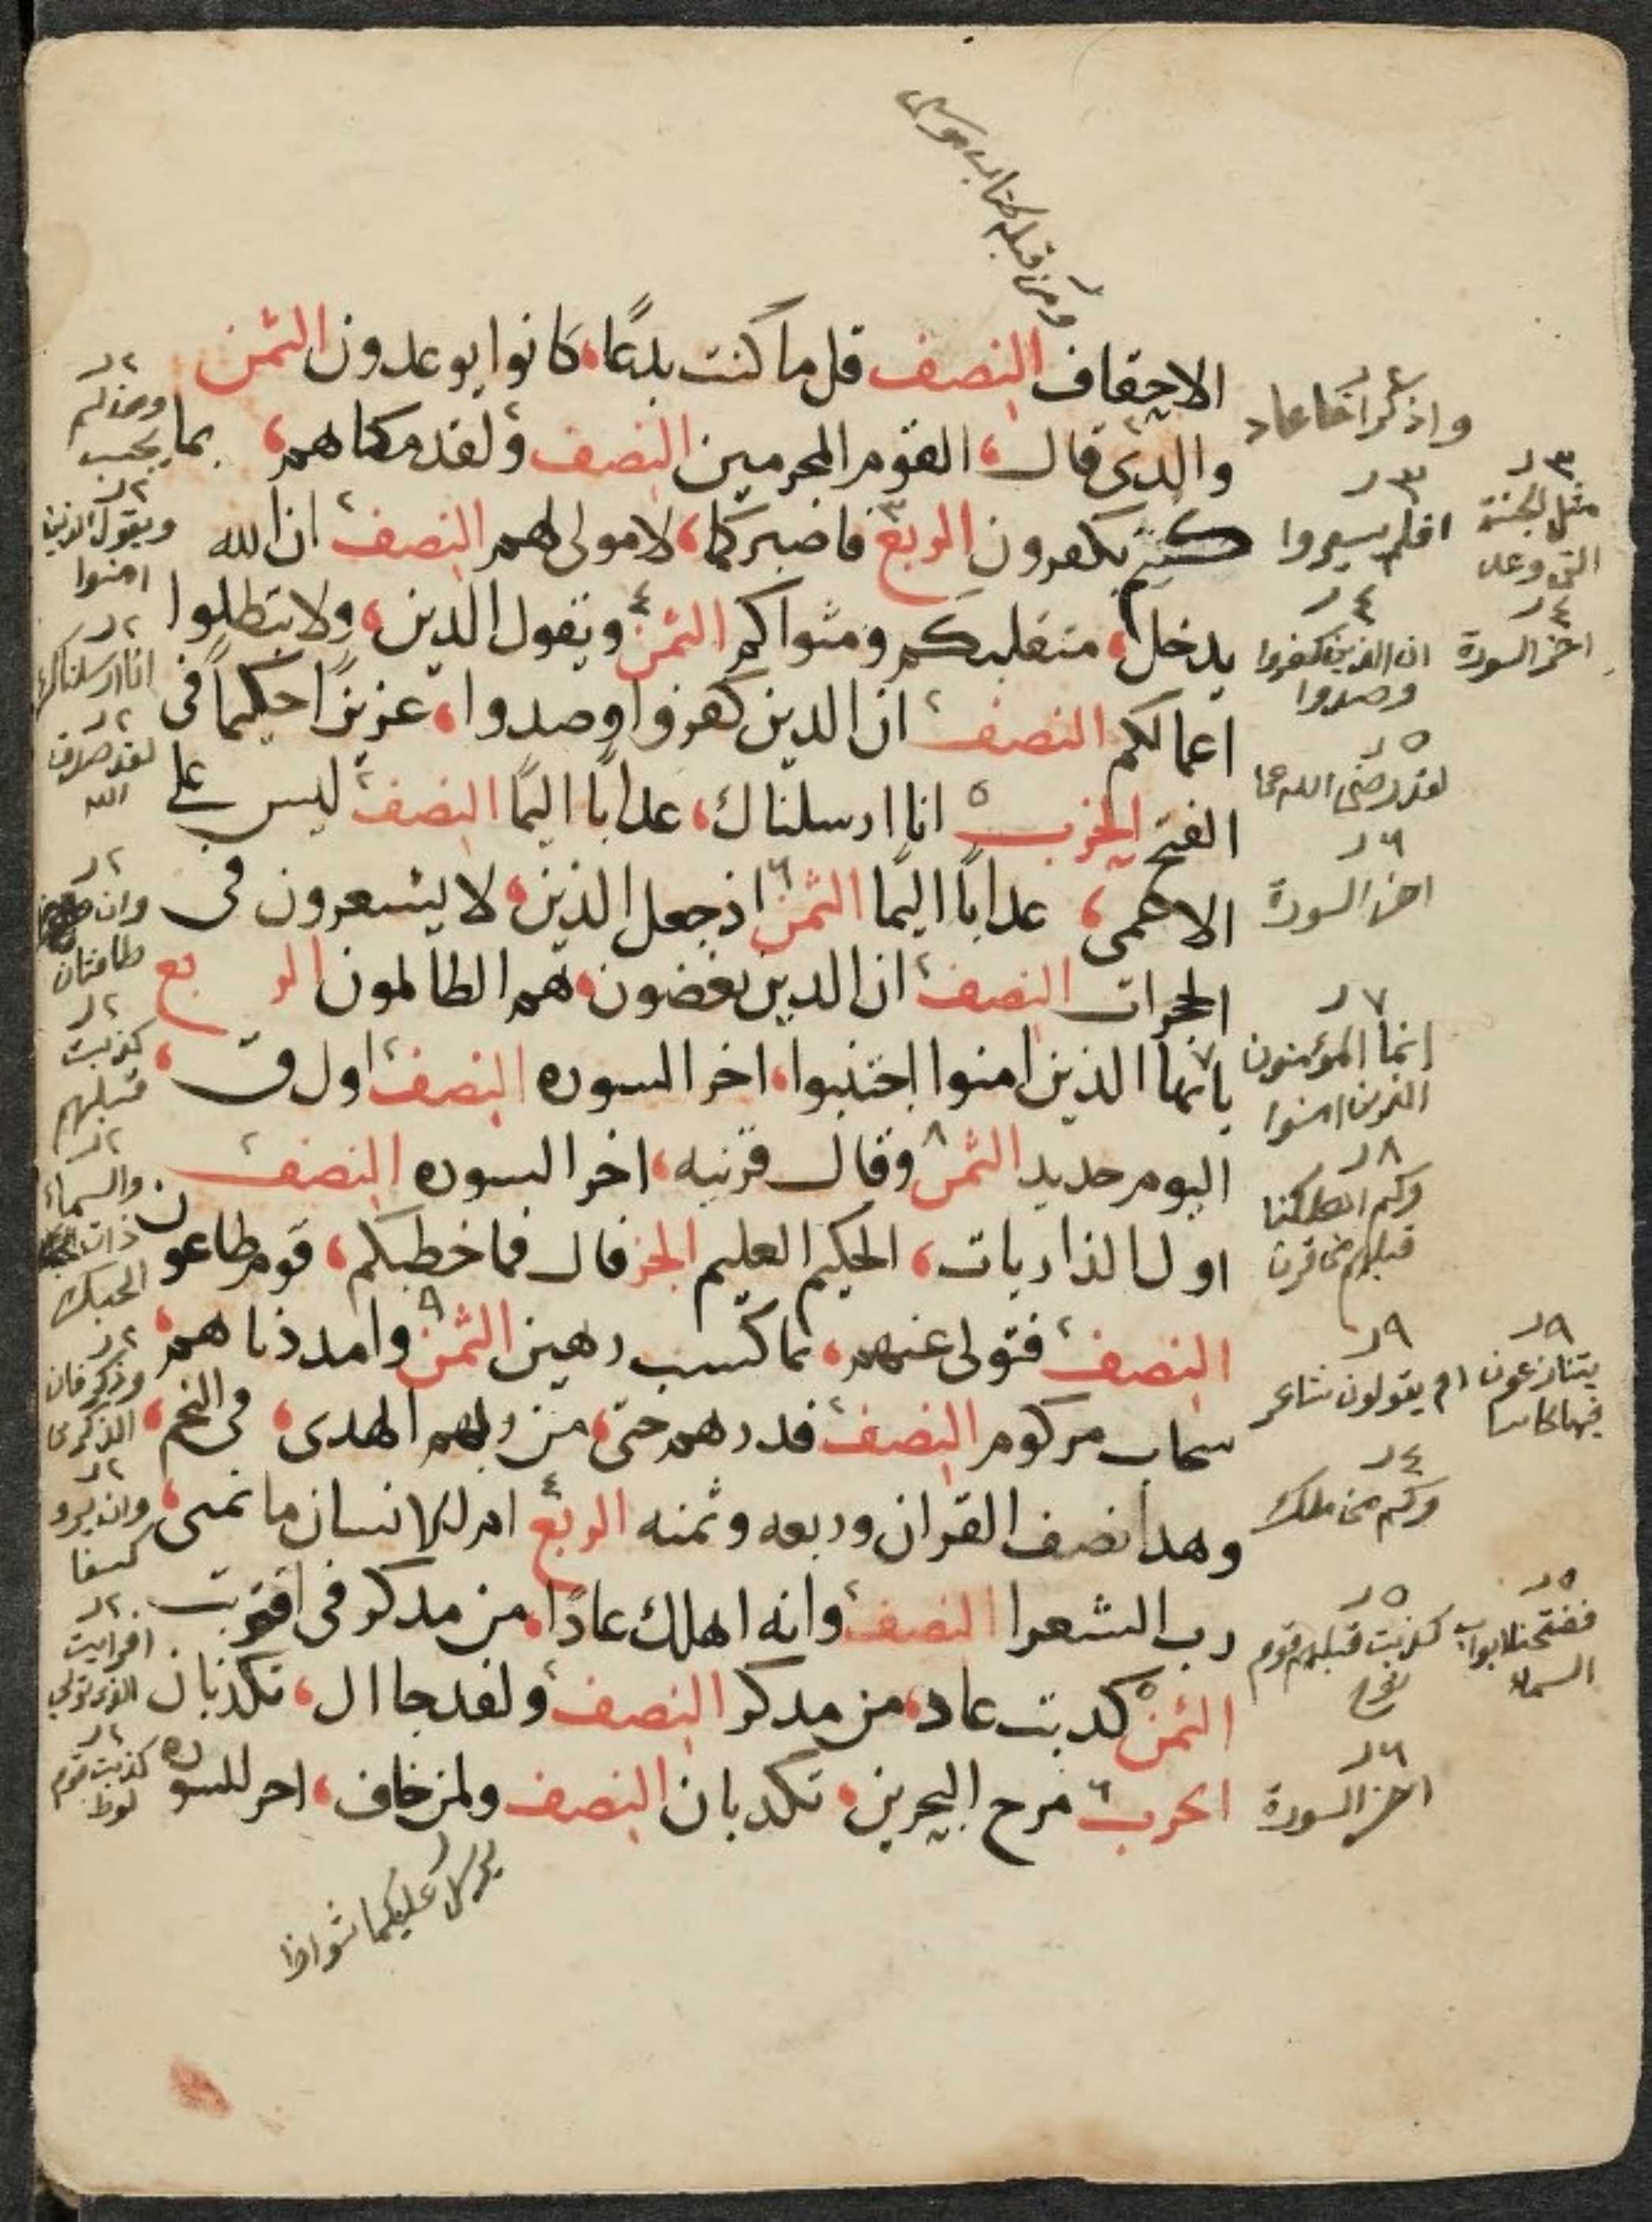 ومن قبله كتاب موسى
الاحقاف النصف قل ما كنت بدعًا، كانوا يوعدون الثمن
والذي قال، القوم المجرمين النصف ولقد مكناهم، بما
كنتم تكفرون الربع فاصبر كما، لا مولى لهم النصف ان الله
يدخل، متقلبكم ومثواكم الثمن ويقول الذين، ولا تبطلوا
اعمالكم النصف ان الذين كفروا وصدوا، عزيزًا حكيمًا في
الفتح الحزب انا ارسلناك، عذابًا اليمًا النصف ليس على
الاعمى، عذابًا اليمًا الثمن اذ جعل الذين، لا يشعرون في
الحجرات النصف ان الذين يغضون، هم الظالمون الربع
يا يها الذين امنوا اجتنبوا، اخر السوره النصف اول ق،
اليوم حديد الثمن وقال قرينه، اخر السوره النصف
اول الذاريات، الحكيم العليم الجز قال فما خطبكم، قوم طاغون
النصف فتولى عنهم، بما كسب رهين الثمن وامددناهم،
سحاب مركوم النصف فذرهم حتى، من ربهم الهدى، في النجم،
وهذا نصف القران وربعه وثمنه الربع ام للانسان ما تمنى،
رب الشعرا النصف وانه اهلك عادًا، من مدكر في اقتربت
الثمن كذبت عاد، من مدكر النصف ولقد جا ال، تكذبان
الحزب مرج البحرين، تكذبان النصف ولمن خاف، اخر السوره
واذكر اخا عاد
٣
افلم يسيروا
٣
مثل الجنة
التي وعد
٤
ان الذين كفروا
وصدوا
٤
اخر السورة
٥
لقد رضى الله عن
٦
اخر السورة
٧
انما المؤمنون
الذين امنوا
٨
وكم اهلكنا
قبلهم من قرن
٩
ام يقولون شاعر
٩
يتنازعون
فيها كاسا
٤
وكم من ملك
٥
كذبت قبلهم قوم
نوح
٥
ففتحنا ابواب
السماء
٦
اخر السورة
٢
ومن لم
يجب
٢
ويقول الذين
امنوا
٢
انا ارسلناك
٢
لقد صدق
الله
٢
وان
طائفتان
٢
كذبت
قبلهم
٢
والسماء
ذات
الحبك
٢
وذكر فان
الذكرى
٢
وان يروا
كسفا
٢
افرايت
الذي تولى
٢
كذبت قوم
لوط
يرسل عليكما شواظ